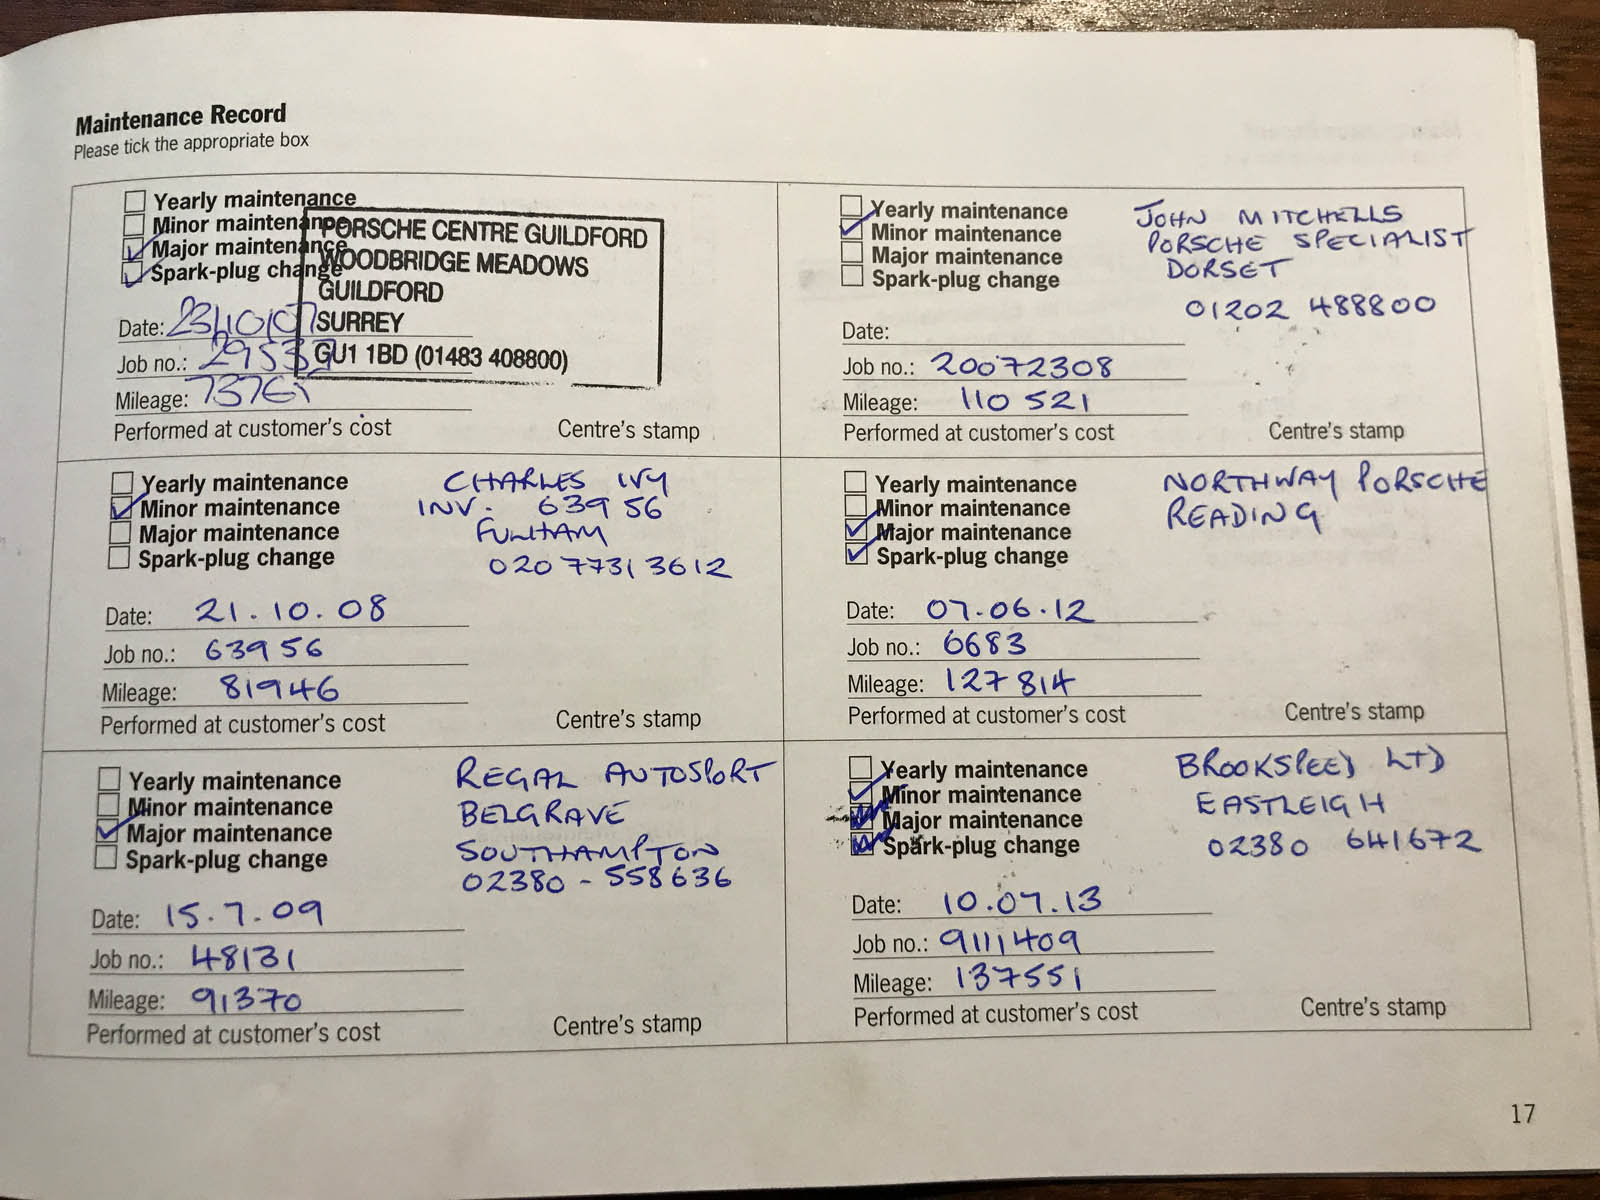 Maintenance Record
Please tick the appropriate box
Yearly maintenance
Minor maintenance
Major maintenance
Spark-plug change
PORSCHE CENTRE GUILDFORD
WOODBRIDGE MEADOWS
GUILDFORD
SURREY
GU1 1BD (01483 408800)
Date: 23/10/07
Job no.:
Mileage:
Performed at customer's cost
Centre's stamp
Yearly maintenance
Minor maintenance
Major maintenance
Spark-plug change
CHARLES IVY
INV. 63956
FULHAM
020 7731 3612
Date: 21.10.08
Job no.: 63956
Mileage: 81946
Performed at customer's cost
Centre's stamp
Yearly maintenance
Minor maintenance
Major maintenance
Spark-plug change
REGAL AUTOSPORT
BELGRAVE
SOUTHAMPTON
02380-558636
Date: 15.7.09
Job no.: 48131
Mileage: 91370
Performed at customer's cost
Centre's stamp
Yearly maintenance
Minor maintenance
Major maintenance
Spark-plug change
JOHN MITCHELLS
PORSCHE SPECIALIST
DORSET
01202 488800
Date:
Job no.: 20072308
Mileage: 110 521
Performed at customer's cost
Centre's stamp
Yearly maintenance
Minor maintenance
Major maintenance
Spark-plug change
NORTHWAY PORSCHE
READING
Date: 07.06.12
Job no.: 6683
Mileage: 127 814
Performed at customer's cost
Centre's stamp
Yearly maintenance
Minor maintenance
Major maintenance
Spark-plug change
BROOKSPEED LTD
EASTLEIGH
02380 641672
Date: 10.07.13
Job no.: 9111409
Mileage: 137551
Performed at customer's cost
Centre's stamp
17